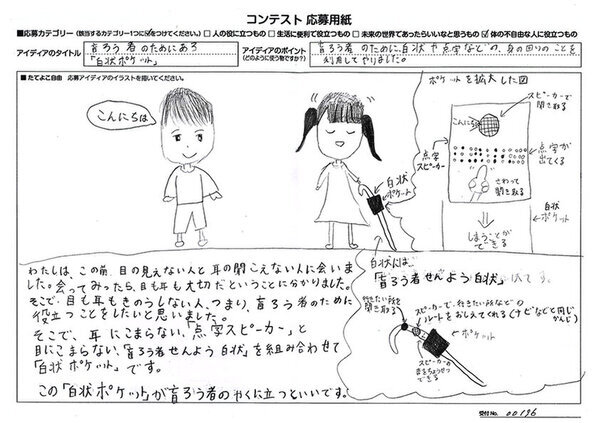 コンテスト 応募用紙
■応募カテゴリー(該当するカテゴリー1つに☑をつけてください。) □ 人の役に立つもの □ 生活に便利で役立つもの □ 未来の世界であったらいいなと思うもの ☑ 体の不自由な人に役立つもの
アイディアのタイトル
盲ろう者のためにある
「白状ポケット」
アイディアのポイント
(どのように使う物ですか?)
盲ろう者のために、白状や点字などの、身の回りのことを
利用してやりました。
■たてよこ自由 応募アイディアのイラストを描いてください。
こんにちは
白状
ポケット
ポケットを拡大した図
スピーカーで
聞き取る
こんにちは
点字
スピーカー
点字が
出てくる
さわって
聞き取る
白状
ポケット
しまうことが
できる
わたしは、この前、目の見えない人と耳の聞こえない人に会いま
した。会ってみったら、目も耳も大切だということに分かりました。
そこで、目も耳もきのうしない人、つまり、盲ろう者のために
役立つことをしたいと思いました。
そこで、耳にこまらない、「点字スピーカー」と
目にこまらない、「盲ろう者せんよう白状」を組み合わせて
「白状ポケット」です。
この「白状ポケット」が盲ろう者のやくに立つといいです。
白状には、
「盲ろう者せんよう白状」
です。
行きたい所を
聞き取る
スピーカーで、行きたい所などの
ルートをおしえてくれる(ナビなどと同じ
かんじ)
ポケット
スピーカーの
音をちょうせつ
できる
受付No. 00196